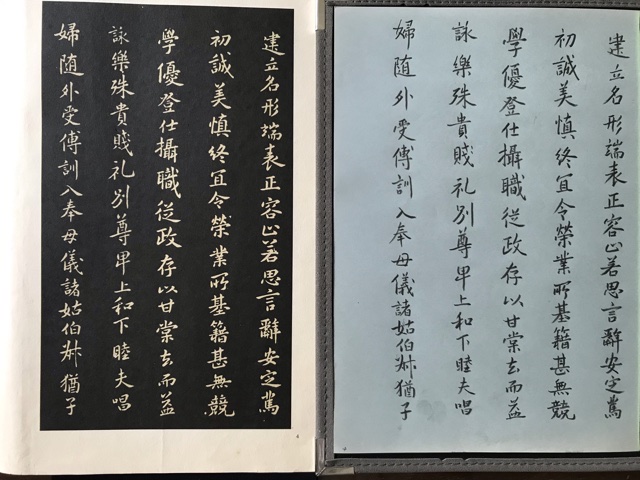 建立名形端表正容止若思言辭安定篤
初誠美慎終宜令榮業所基籍甚無競
學優登仕攝職從政存以甘棠去而益
詠樂殊貴賤礼別尊卑上和下睦夫唱
婦随外受傅訓入奉母儀諸姑伯叔猶子
建立名形端表正容止若思言辭安定篤
初誠美慎終宜令榮業所基籍甚無競
學優登仕攝職從政存以甘棠去而益
詠樂殊貴賤礼別尊卑上和下睦夫唱
婦随外受傅訓入奉母儀諸姑伯叔猶子